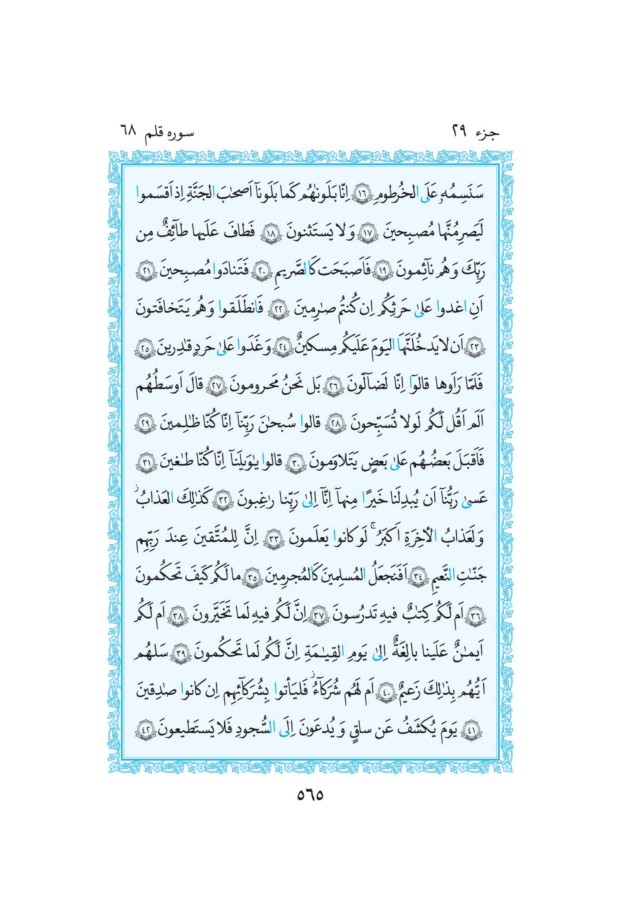 جزء ٢٩ سوره قلم ٦٨
سَنَسِمُهُۥ عَلَى الخُرطومِ ﴿١٦﴾ اِنّا بَلَونٰهُم كَما بَلَونآ اَصحٰبَ الجَنَّةِ اِذ اَقسَموا
لَيَصرِمُنَّها مُصبِحينَ ﴿١٧﴾ وَلا يَستَثنونَ ﴿١٨﴾ فَطافَ عَلَيها طآئِفٌ مِن
رَبِّكَ وَهُم نآئِمونَ ﴿١٩﴾ فَاَصبَحَت كَالصَّريمِ ﴿٢٠﴾ فَتَنادَوا مُصبِحينَ ﴿٢١﴾
اَنِ اغدوا عَلىٰ حَرثِكُم اِن كُنتُم صٰرِمينَ ﴿٢٢﴾ فَانطَلَقوا وَهُم يَتَخافَتونَ
﴿٢٣﴾ اَن لا يَدخُلَنَّهَا اليَومَ عَلَيكُم مِسكينٌ ﴿٢٤﴾ وَغَدَوا عَلىٰ حَردٍ قٰدِرينَ ﴿٢٥﴾
فَلَمّا رَاَوها قالوٓا اِنّا لَضآلّونَ ﴿٢٦﴾ بَل نَحنُ مَحرومونَ ﴿٢٧﴾ قالَ اَوسَطُهُم
اَلَم اَقُل لَكُم لَولا تُسَبِّحونَ ﴿٢٨﴾ قالوا سُبحٰنَ رَبِّنآ اِنّا كُنّا ظٰلِمينَ ﴿٢٩﴾
فَاَقبَلَ بَعضُهُم عَلىٰ بَعضٍ يَتَلاوَمونَ ﴿٣٠﴾ قالوا يٰوَيلَنآ اِنّا كُنّا طٰغينَ ﴿٣١﴾
عَسىٰ رَبُّنآ اَن يُبدِلَنا خَيرًا مِنهآ اِنّآ اِلىٰ رَبِّنا رٰغِبونَ ﴿٣٢﴾ كَذٰلِكَ العَذابُ ۖ
وَلَعَذابُ الأخِرَةِ اَكبَرُ ۚ لَو كانوا يَعلَمونَ ﴿٣٣﴾ اِنَّ لِلمُتَّقينَ عِندَ رَبِّهِم
جَنّٰتِ النَّعيمِ ﴿٣٤﴾ اَفَنَجعَلُ المُسلِمينَ كَالمُجرِمينَ ﴿٣٥﴾ ما لَكُم كَيفَ تَحكُمونَ
﴿٣٦﴾ اَم لَكُم كِتٰبٌ فيهِ تَدرُسونَ ﴿٣٧﴾ اِنَّ لَكُم فيهِ لَما تَخَيَّرونَ ﴿٣٨﴾ اَم لَكُم
اَيمٰنٌ عَلَينا بالِغَةٌ اِلىٰ يَومِ القِيٰمَةِ اِنَّ لَكُم لَما تَحكُمونَ ﴿٣٩﴾ سَلهُم
اَيُّهُم بِذٰلِكَ زَعيمٌ ﴿٤٠﴾ اَم لَهُم شُرَكآءُ فَليَأتوا بِشُرَكآئِهِم اِن كانوا صٰدِقينَ
﴿٤١﴾ يَومَ يُكشَفُ عَن ساقٍ وَيُدعَونَ اِلَى السُّجودِ فَلا يَستَطيعونَ ﴿٤٢﴾
٥٦٥